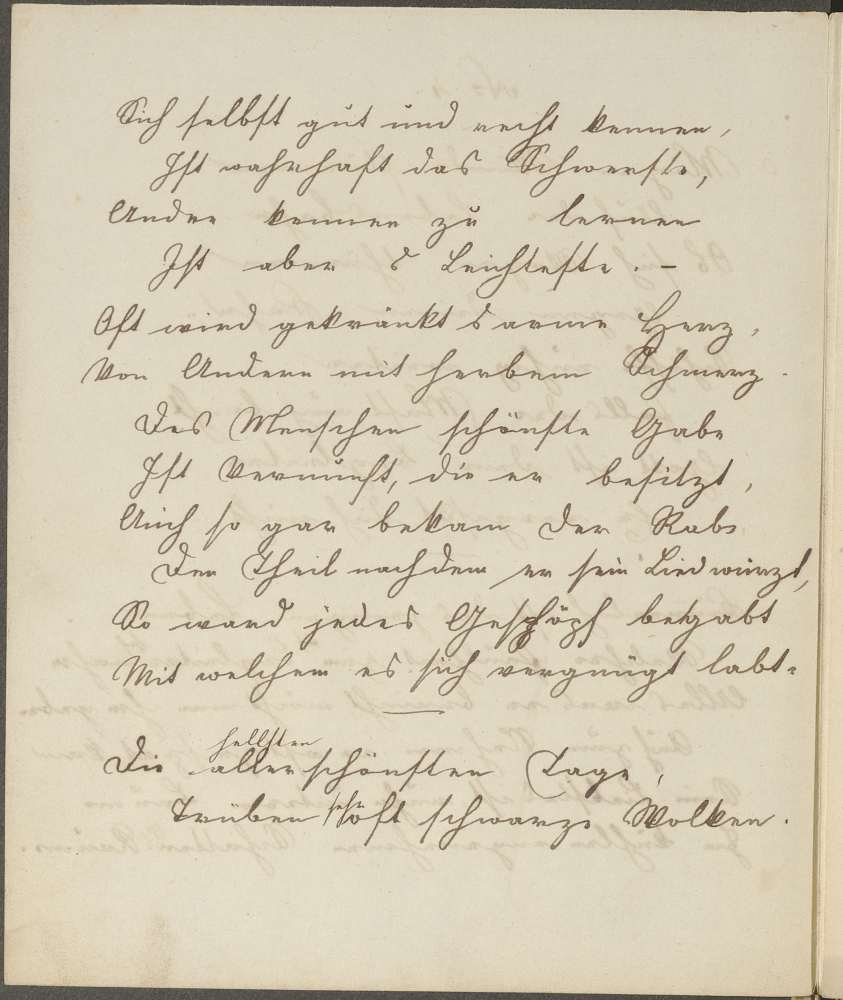 Sich selbst gut und recht kennen,
Ist wahrhaft das Schwerste,
Andre kennen zu lernen
Ist aber s Leichteste. –
Oft wird gekränkt s arme Herz,
Von Andern mit herbem Schmerz.
Des Menschen schönste Gabe
Ist Vernunft, die er besitzt,
Auch so gar bekam der Rabe
Den Theil nachdem er sein Lied
So ward jedes Geschöpf begabt
Mit welchem es sich vergnügt labt.
hellsten
Die allerschönsten Tage,
Trüben sehr oft schwarze Wolken.